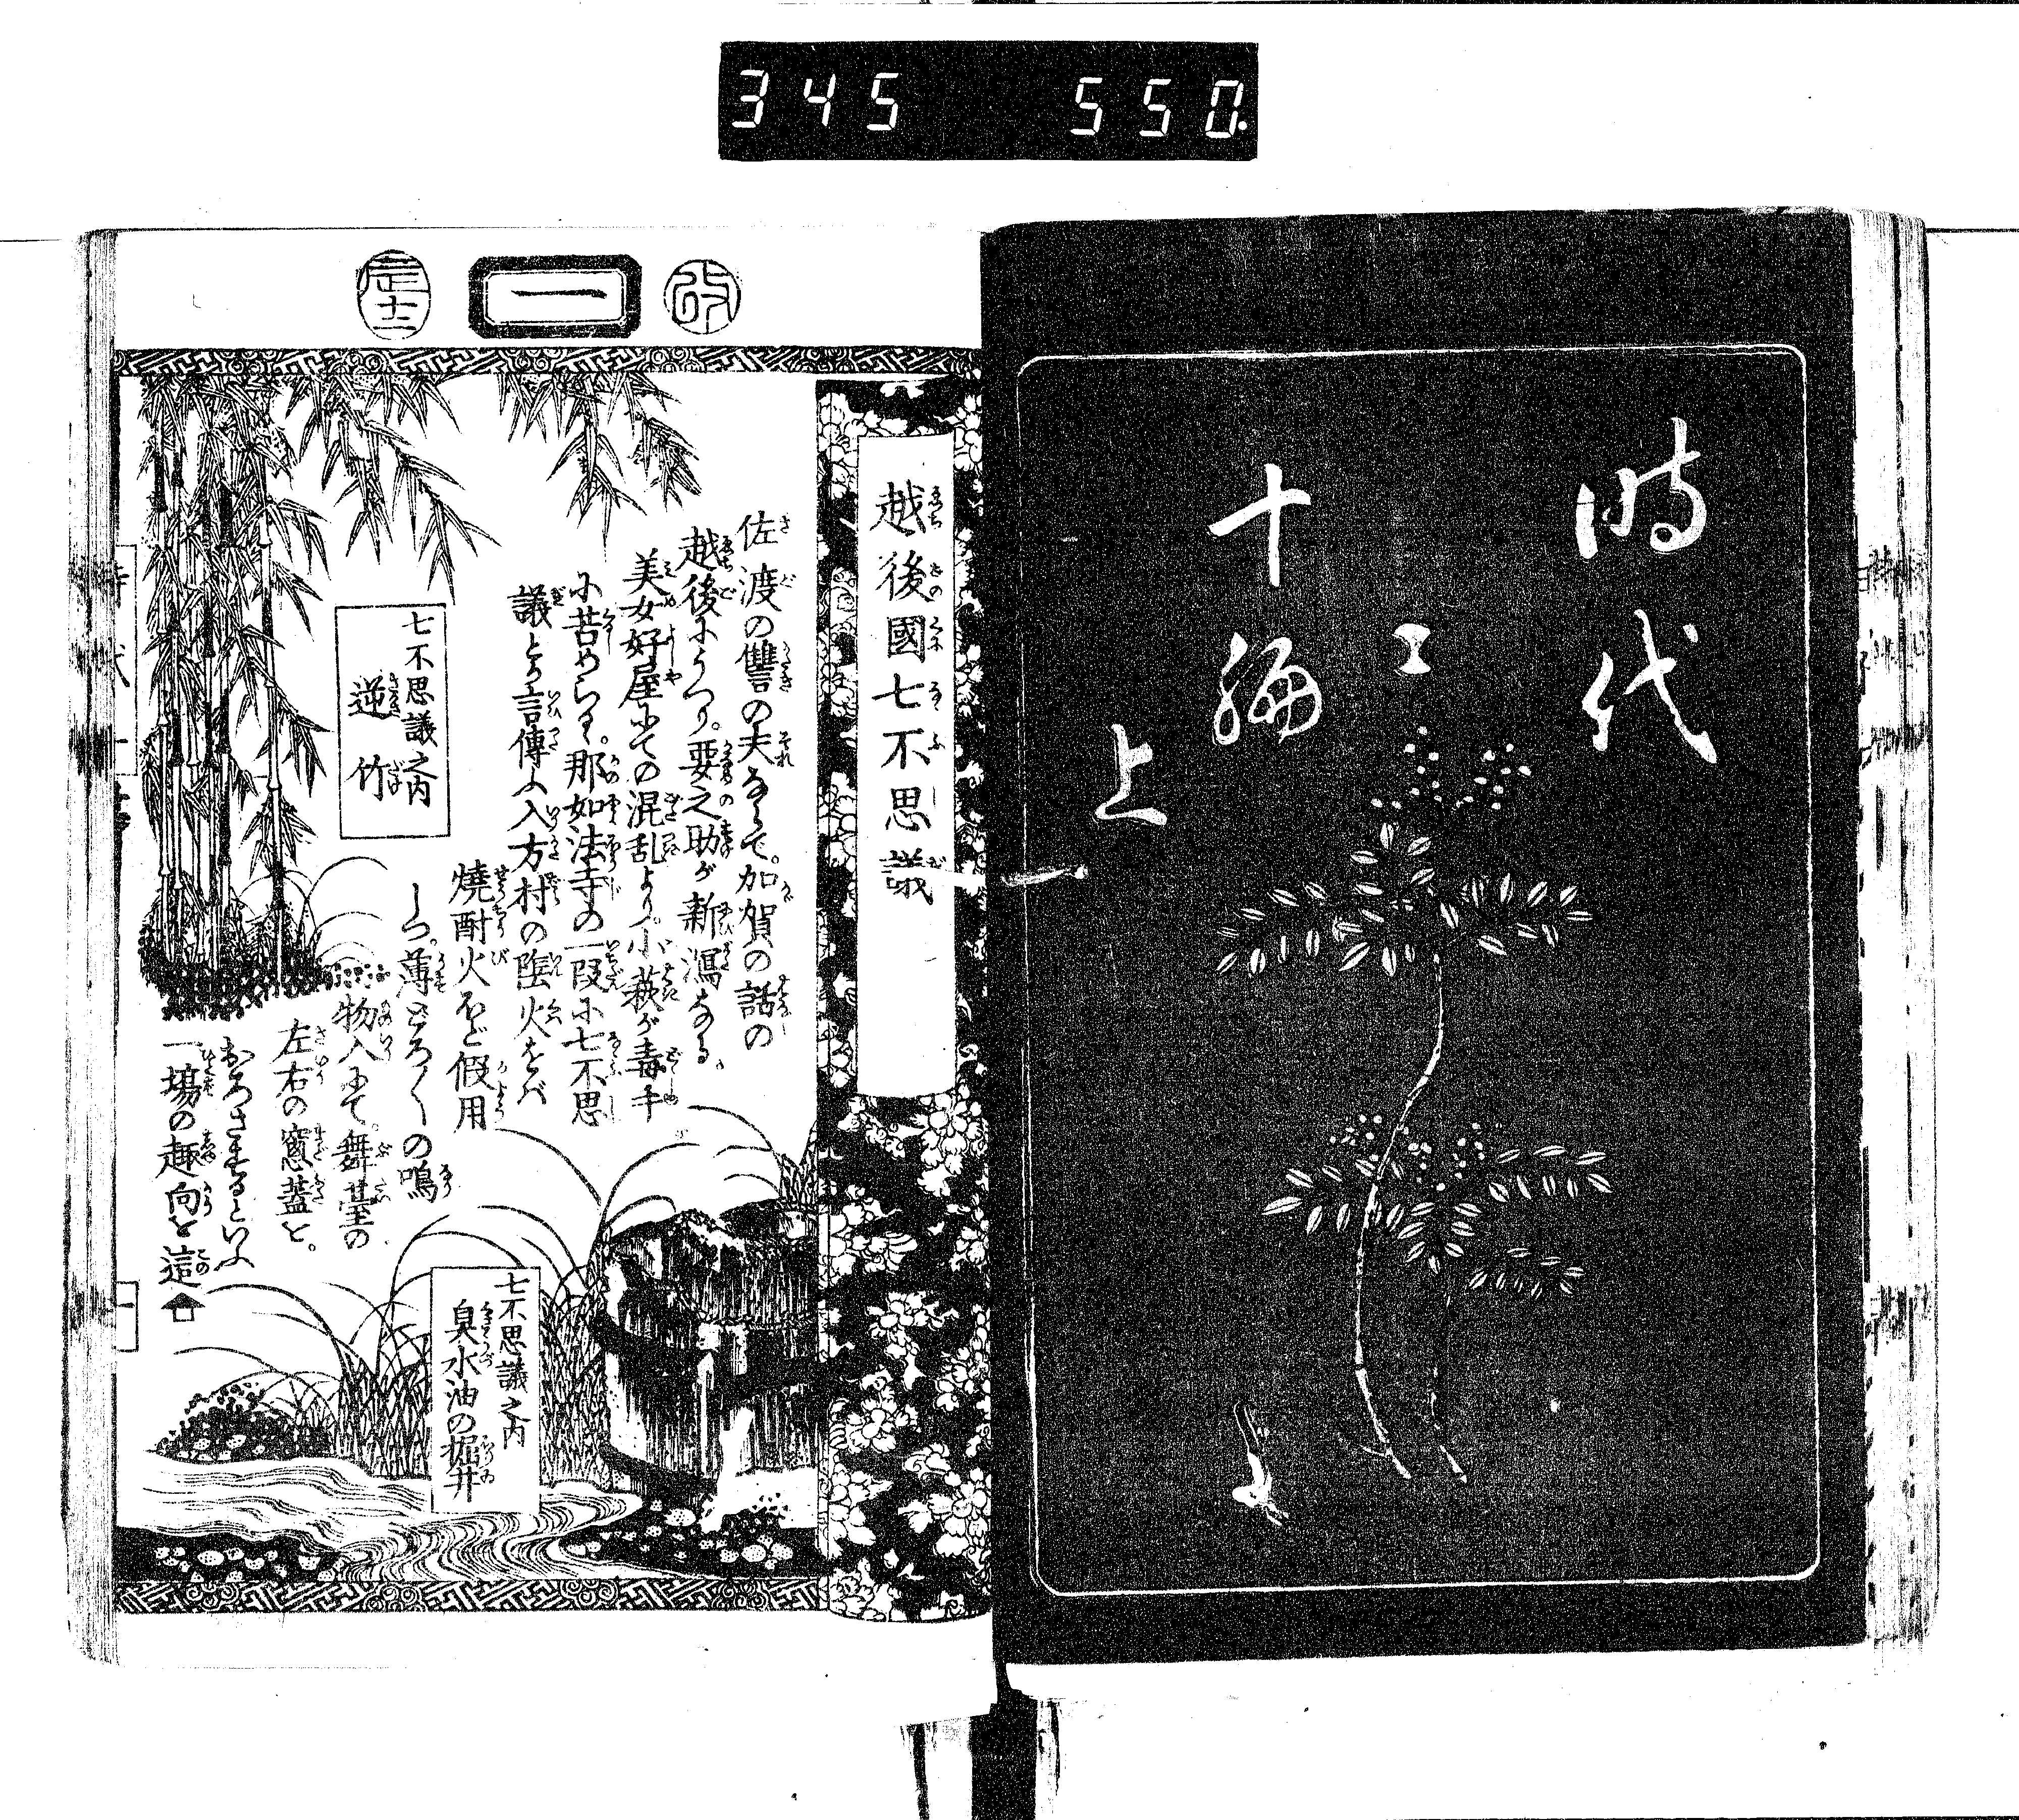 345 550.
時代
十編
上
改
一
越後國七不思議
佐渡の讐の夫ならで。加賀の話の
越後にうつり。要之助が新潟なる。
美女好屋にての混乱より。小萩が毒手
に苦められ。那如法寺の一段に七不思
議とを言傳ふ入方村の陰火をバ
燒酎火など假用
しつ。薄どろ〳〵の鳴
物入にて。舞臺の
左右の窓蓋と。
おろさするといふ
一場の趣向と這
七不思議之内
逆竹
七不思議之内
臭水油の掘井